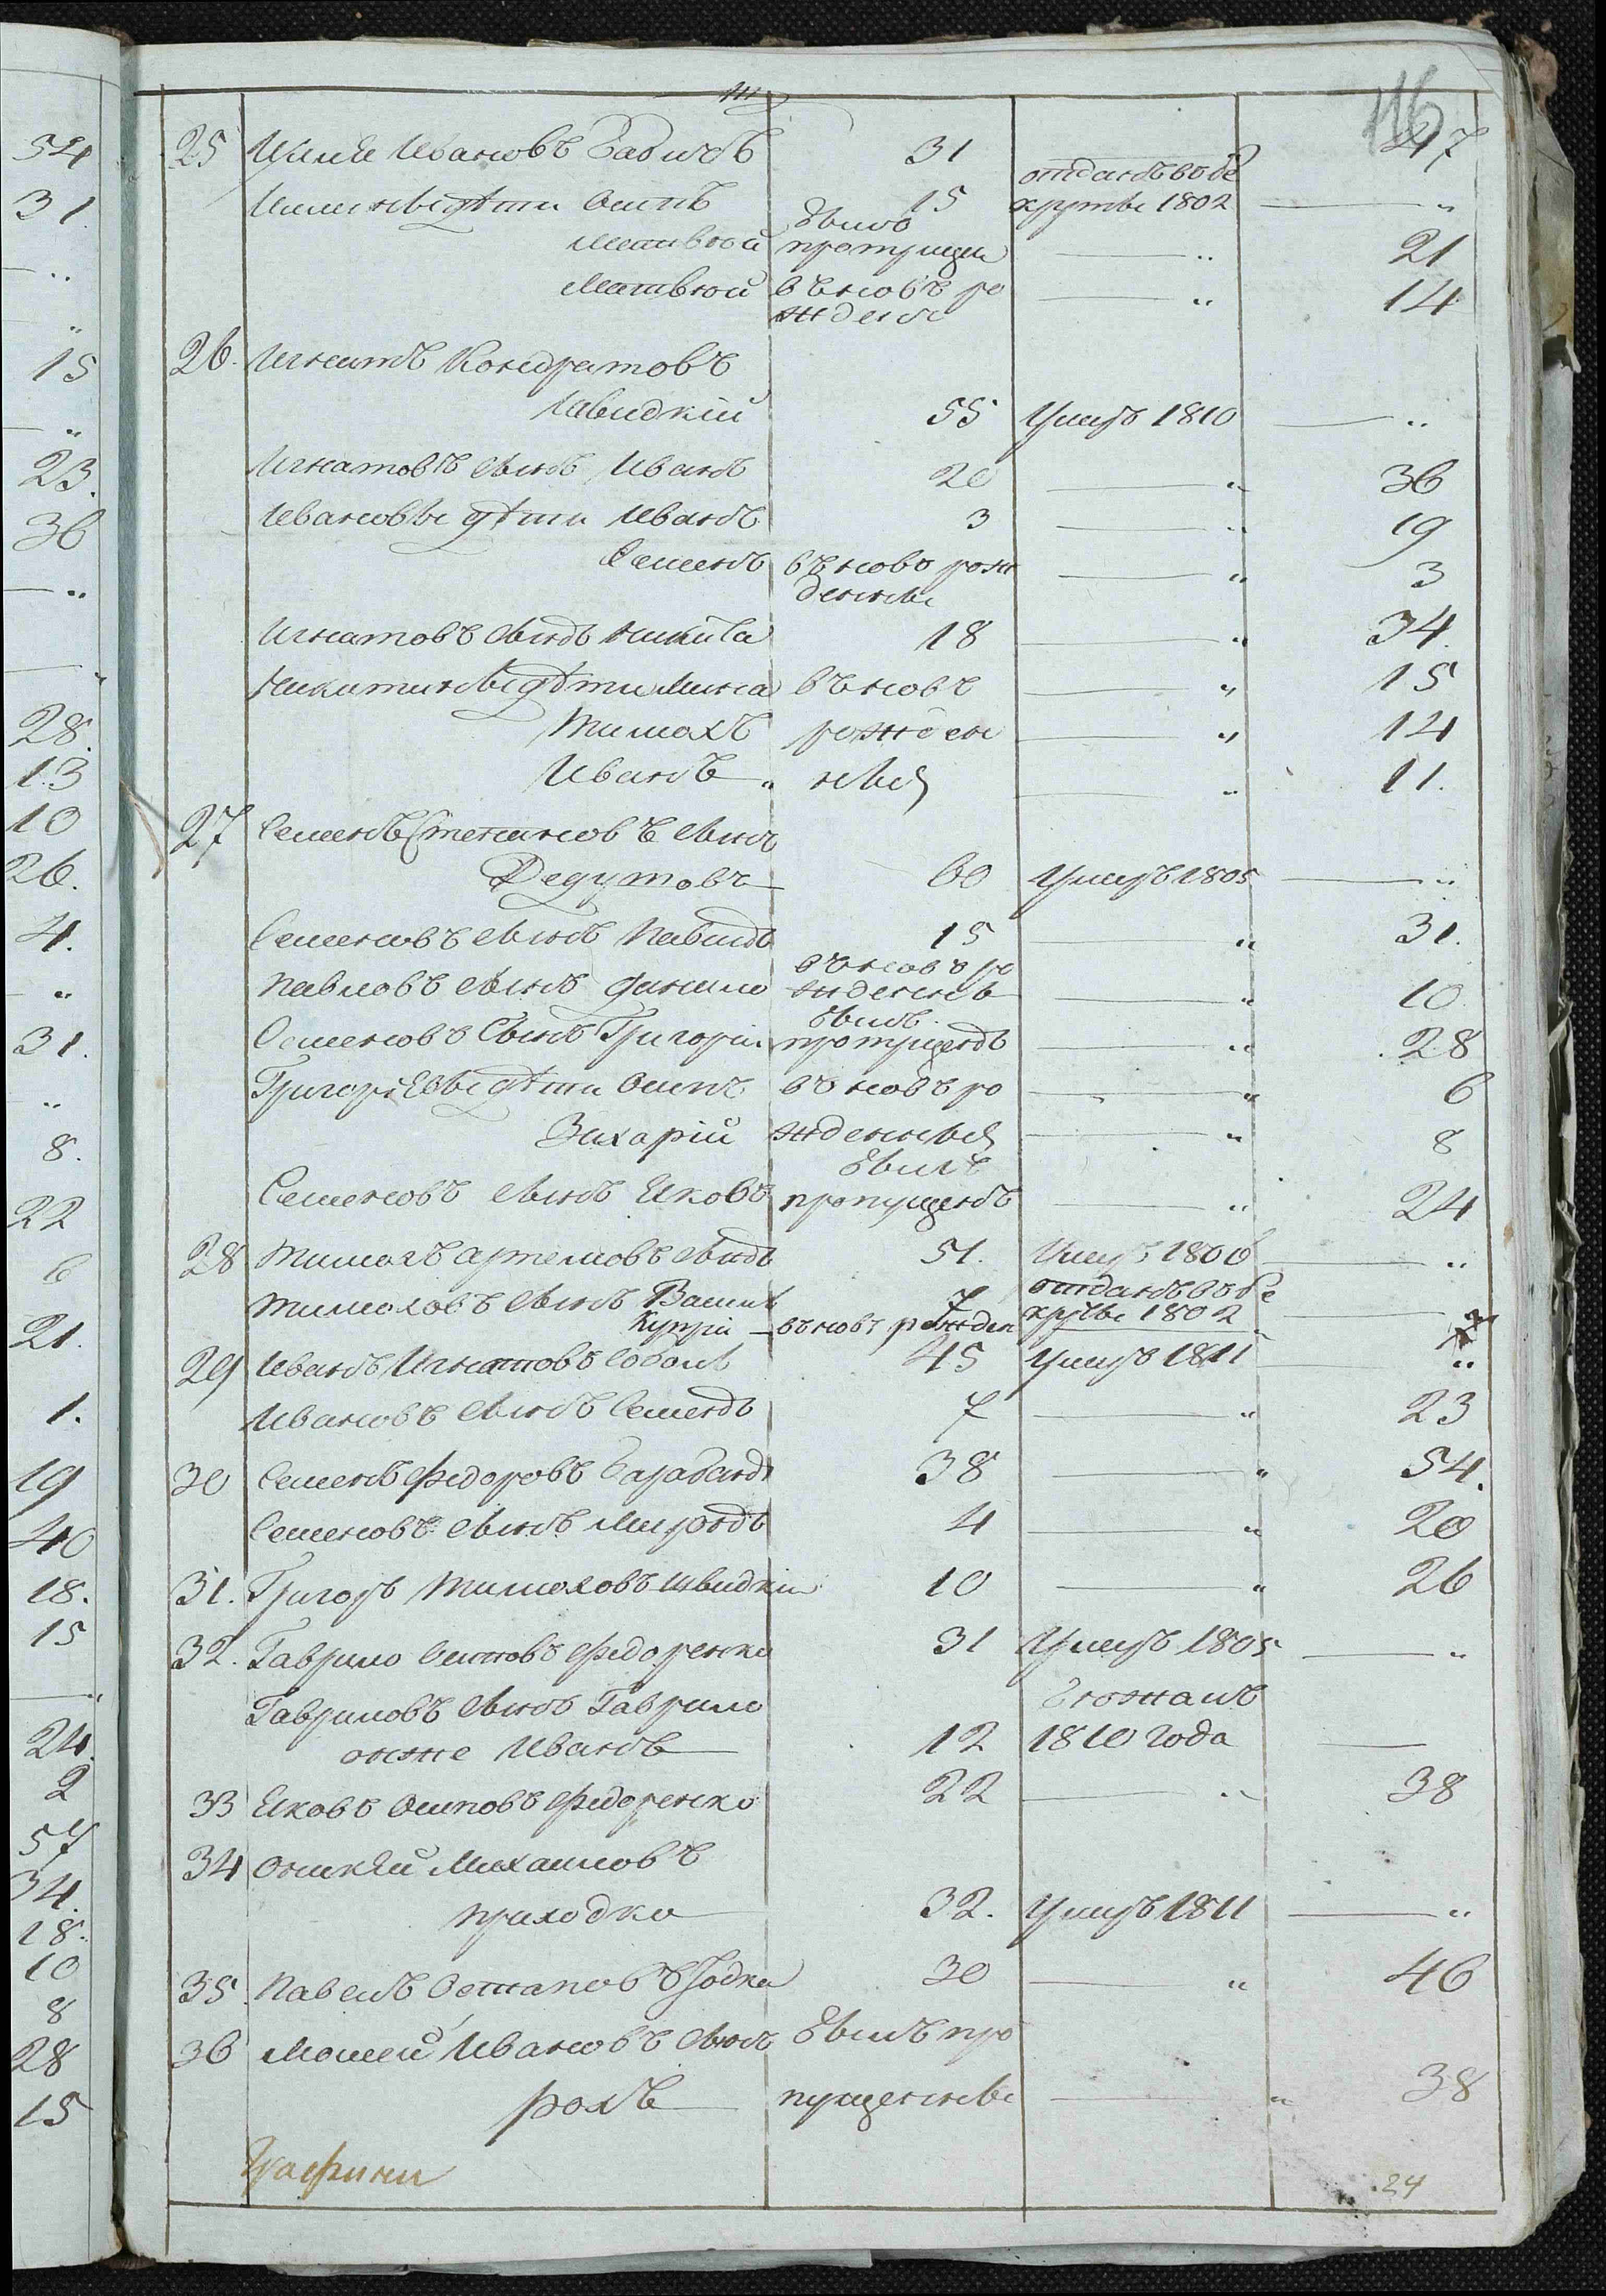 116
25 Илья Ивановъ Бабичъ 31 — 47
Ильины дѣти Осипъ 15 отданъ въ ре
круты 1802 — "
Матвѣй былъ
пропущен — " 21
Матвѣй въ новъ ро
жденъ — " 14
26. Игнатъ Кондратовъ
Швидкій 55 Умеръ 1810 — "
Игнатовъ сынъ Иванъ 20 — " 36
Ивановы дѣти Иванъ 3 — " 19
Семенъ въ ново рож
денны — " 3
Игнатовъ сынъ Никита 18 — " 34.
Никитины дѣти Мина въ новъ — " 15
Тимохъ рожден — " 14
Иванъ " ныя — " 11.
27 Семенъ Степановъ сынъ
Дедутовъ 60 Умеръ 1805 — "
Семеновъ сынъ Павилъ 15 — " 31.
Павловъ сынъ Данило въ новъ ро
жденны — " 10
Семеновъ Сынъ Григорій былъ
пропущенъ — " 28
Григоріевы дѣти Осипъ въ новъ ро — " 6
Захарій жденныя — " 8
Семеновъ сынъ Яковъ былъ
пропущенъ — " 24
28 Тимохъ Артемовъ сынъ 51. Умеръ 1806 — "
Тимоховъ сынъ Василь 7 отданъ въ ре
круты 1802 — "
Купрій — въ новъ рожден
29 Иванъ Игнатовъ Соболь 45 Умеръ 1811 — "
Ивановъ сынъ Семенъ 7 — " 23
30 Семенъ Федоровъ Барабанъ 38 — " 54.
Семеновъ сынъ Миронъ 4 — " 20
31. Григоръ Тимоховъ Швидкій 10 — " 26
32. Гаврило Осиповъ Федоренко 31 Умеръ 1805 — "
Гавриловъ сынъ Гаврило
онже Иванъ 12 бежалъ
1810 года —
33 Яковъ Осиповъ Федоренко 22 — " 38
34 Оникѣй Михаиловъ
Приходко 32. Умеръ 1811 — "
35. Павелъ Остаповъ 30 — " 46
36 Мосей Ивановъ сынъ былъ про
рохъ пущенны — " 38
Графини
24
54
31.
"
"
15
"
23.
36
"
"
28.
13
10
26.
4.
"
31.
"
8.
22
6
21.
1.
19
40
18.
15
"
24.
2
57
34.
18.
10
8
28
15